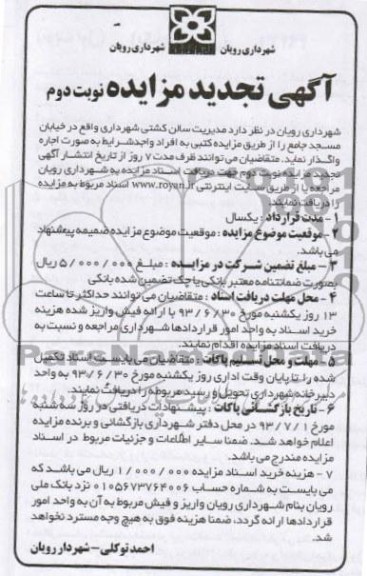 شهرداری رویان
شهرداری رویان
آگهی تجدید مزایده نوبت دوم
شهرداری رویان در نظر دارد مدیریت سالن کشتی شهرداری واقع در خیابان
مسجد جامع را از طریق مزایده کتبی به افراد واجدشرایط به صورت اجاره
واگذار نماید. متقاضیان می توانند ظرف مدت ۷ روز از تاریخ انتشار آگهی
تجدید مزایده نوبت دوم جهت دریافت اسناد مزایده به شهرداری رویان
مراجعه یا از طریق سایت اینترنتی www.royan.ir اسناد مربوط به مزایده
را دریافت نمایند.
۱- مدت قرارداد : یکسال
۲- موقعیت موضوع مزایده : موقعیت موضوع مزایده ضمیمه پیشنهاد
می باشد.
۳ - مبلغ تضمین شرکت در مزایده : مبلغ ۵/۰۰۰/۰۰۰ ریال
بصورت ضمانتنامه معتبر بانکی یا چک تضمین شده بانکی
۴ - محل مهلت دریافت اسناد : متقاضیان می توانند حداکثر تا ساعت
۱۳ روز یکشنبه مورخ ۹۳/۶/۳۰ با ارائه فیش واریز شده هزینه
خرید اسناد به واحد امور قراردادها شهرداری مراجعه و نسبت به
دریافت اسناد مزایده اقدام نمایند.
۵ - مهلت و محل تسلیم پاکات : متقاضیان می بایست اسناد تکمیل
شده را تا پایان وقت اداری روز یکشنبه مورخ ۹۳/۶/۳۰ به واحد
دبیرخانه شهرداری تحویل و رسید مربوطه را دریافت نمایند.
۶ - تاریخ بازگشائی پاکات : پیشنهادات دریافتی در روز سه شنبه
مورخ ۹۳/۷/۱ در محل دفتر شهرداری بازگشائی و برنده مزایده
اعلام خواهد شد. ضمنا سایر اطلاعات و جزئیات مربوط در اسناد
مزایده مندرج می باشد.
۷ - هزینه خرید اسناد مزایده ۱/۰۰۰/۰۰۰ ریال می باشد که
می بایست به شماره حساب ۰۱۰۵۶۷۳۷۶۴۰۰۶ نزد بانک ملی
رویان بنام شهرداری رویان واریز و فیش مربوط به آن به واحد امور
قراردادها ارائه گردد، ضمنا هزینه فوق به هیچ وجه مسترد نخواهد
شد.
احمد توکلی - شهردار رویان